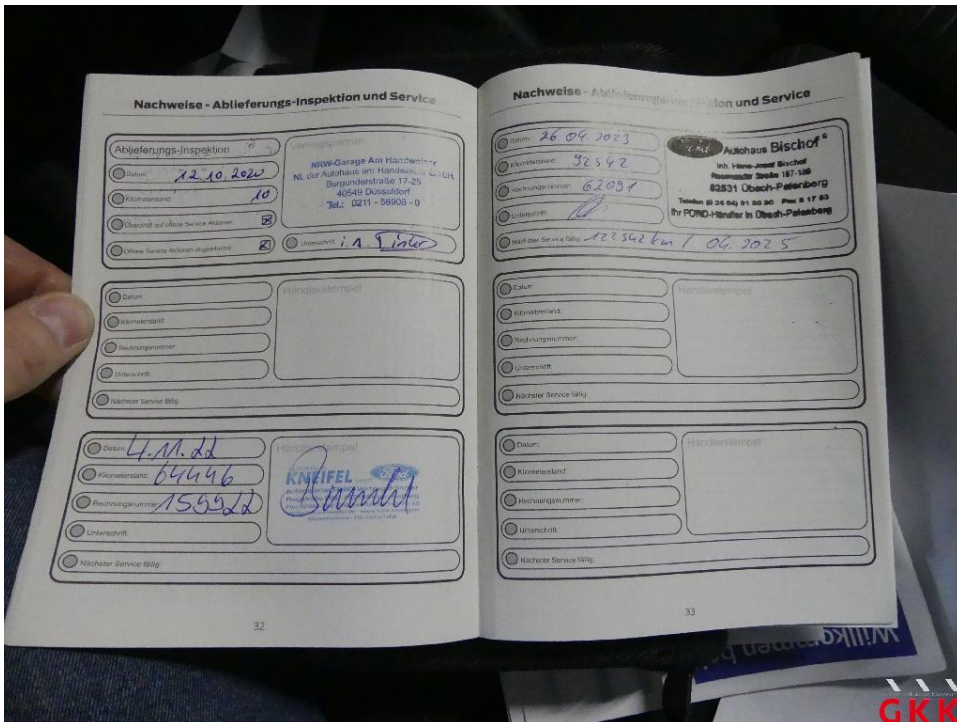 Nachweise - Ablieferungs-Inspektion und Service
Ablieferungs-Inspektion
Datum: 12.10.2020
Kilometerstand: 10
Überprüft auf offene Service Aktionen:
Offene Service Aktionen abgearbeitet:
Vertragspartner
NRW-Garage Am Handweiser
NL der Autohaus am Handweiser GmbH
Burgunderstraße 17-25
40549 Düsseldorf
Tel.: 0211 - 56906 - 0
Unterschrift: i.A.
Datum:
Kilometerstand:
Rechnungsnummer:
Unterschrift:
Nächster Service fällig:
Händlerstempel
Datum: 4.11.22
Kilometerstand: 64446
Rechnungsnummer: 155922
Unterschrift:
Nächster Service fällig:
Händlerstempel
KNEIFEL
32
Nachweise - Ablieferungs-Inspektion und Service
Datum: 26.04.2023
Kilometerstand: 92542
Rechnungsnummer: 62091
Unterschrift:
Nächster Service fällig: 122542 km / 04.2025
Autohaus Bischof
Inh. Hans-Josef Bischof
Übach-Palenberg
Ihr FORD-Händler in Übach-Palenberg
Datum:
Kilometerstand:
Rechnungsnummer:
Unterschrift:
Nächster Service fällig:
Händlerstempel
Datum:
Kilometerstand:
Rechnungsnummer:
Unterschrift:
Nächster Service fällig:
Händlerstempel
33
Willkommen
GKK